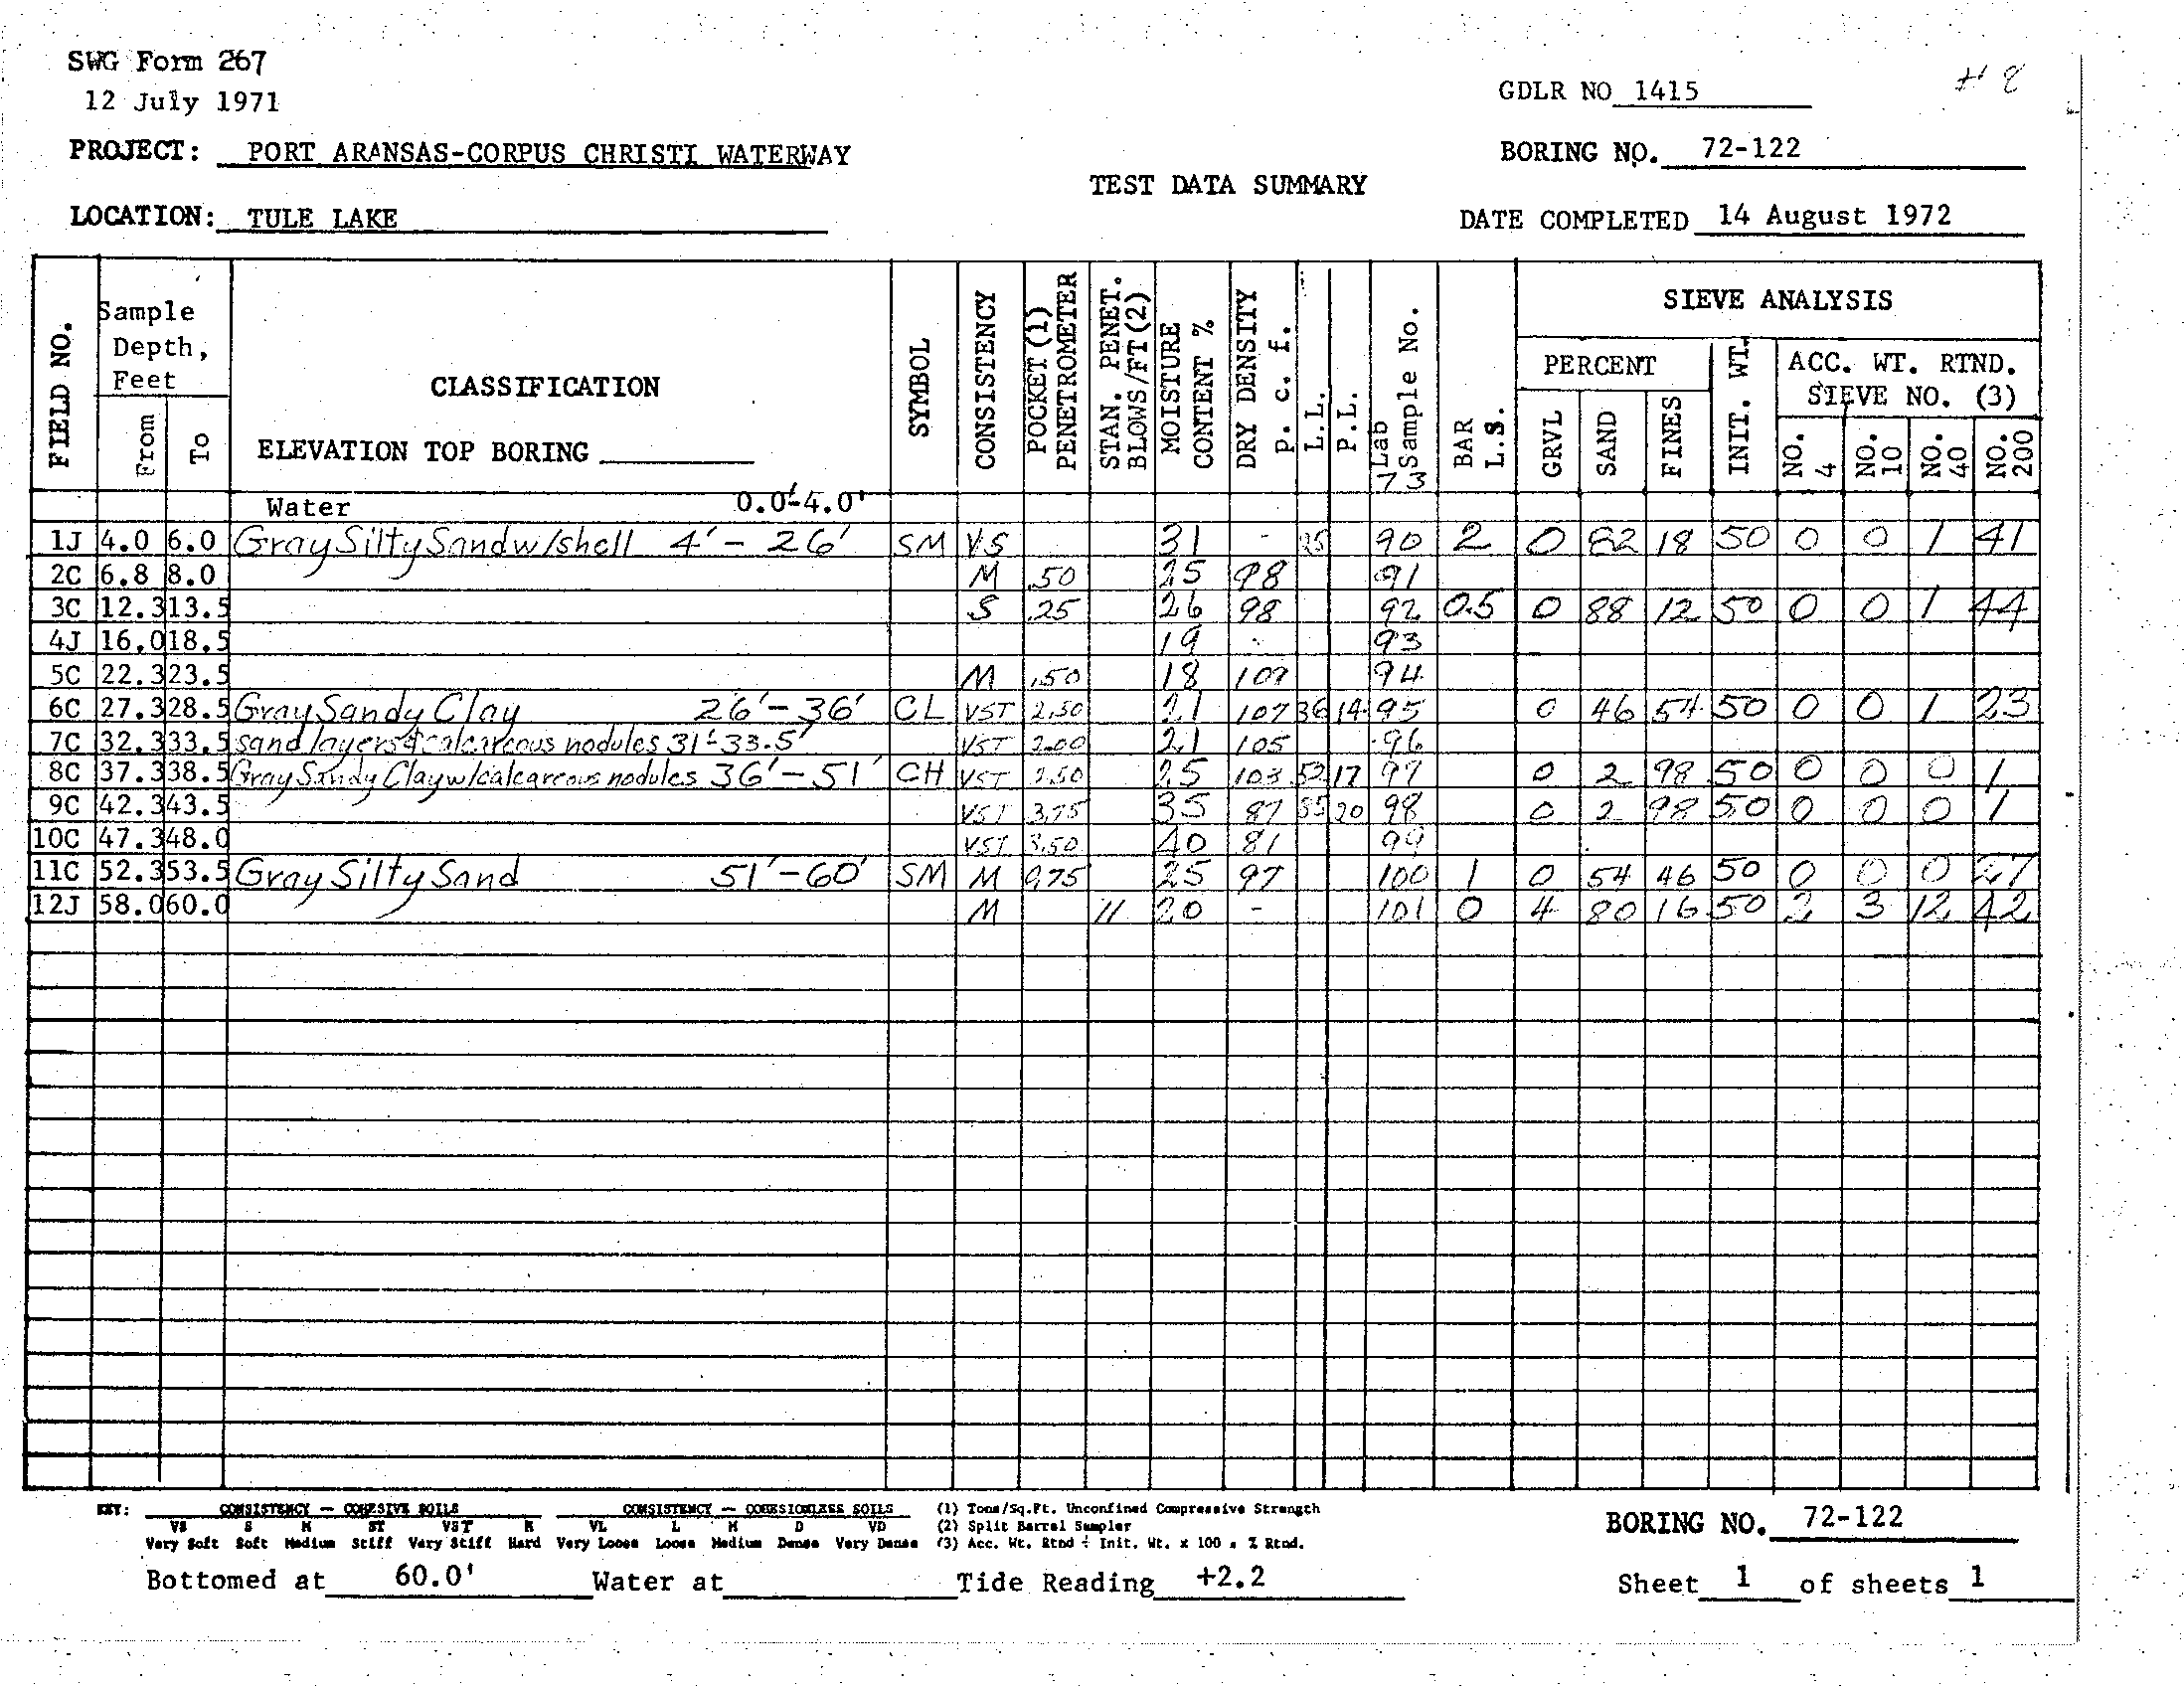 SWG Form 267
12 July 1971
GDLR NO 1415
# 8
PROJECT: PORT ARANSAS-CORPUS CHRISTI WATERWAY
BORING NO. 72-122
TEST DATA SUMMARY
LOCATION: TULE LAKE
DATE COMPLETED 14 August 1972
FIELD NO.
Sample Depth, Feet
From
To
CLASSIFICATION
ELEVATION TOP BORING
SYMBOL
CONSISTENCY
POCKET (1) PENETROMETER
STAN. PENET. BLOWS/FT (2)
MOISTURE CONTENT %
DRY DENSITY p. c. f.
L.L.
P.L.
Lab Sample No.
73
BAR L.S.
SIEVE ANALYSIS
PERCENT
GRVL
SAND
FINES
INIT. WT.
ACC. WT. RTND.
SIEVE NO. (3)
NO. 4
NO. 10
NO. 40
NO. 200
Water 0.0'-4.0'
1J 4.0 6.0 Gray Silty Sand w/shell 4'- 26' SM VS 31 - 25 90 2 0 82 18 50 0 0 1 41
2C 6.8 8.0 M .50 25 98 91
3C 12.3 13.5 S .25 26 98 92 0.5 0 88 12 50 0 0 1 44
4J 16.0 18.5 19 - 93
5C 22.3 23.5 M .50 18 109 94
6C 27.3 28.5 Gray Sandy Clay 26'-36' CL VST 2.50 21 107 36 14 95 0 46 54 50 0 0 1 23
7C 32.3 33.5 sand layers & calcareous nodules 31'-33.5' VST 2.00 21 105 96
8C 37.3 38.5 Gray Sandy Clay w/calcareous nodules 36'-51' CH VST 2.50 25 103 52 17 97 0 2 98 50 0 0 0 1
9C 42.3 43.5 VST 3.75 35 87 85 20 98 0 2 98 50 0 0 0 1
10C 47.3 48.0 VST 3.50 40 81 99
11C 52.3 53.5 Gray Silty Sand 51'-60' SM M 0.75 25 97 100 1 0 54 46 50 0 0 0 27
12J 58.0 60.0 M 11 20 - 101 0 4 80 16 50 2 3 12 42
KEY: CONSISTENCY — COHESIVE SOILS CONSISTENCY — COHESIONLESS SOILS (1) Tons/Sq.Ft. Unconfined Compressive Strength
VS S M ST VST H VL L M D VD (2) Split Barrel Sampler
Very Soft Soft Medium Stiff Very Stiff Hard Very Loose Loose Medium Dense Very Dense (3) Acc. Wt. Rtnd ÷ Init. Wt. x 100 = % Rtnd.
BORING NO. 72-122
Bottomed at 60.0' Water at Tide Reading +2.2
Sheet 1 of sheets 1